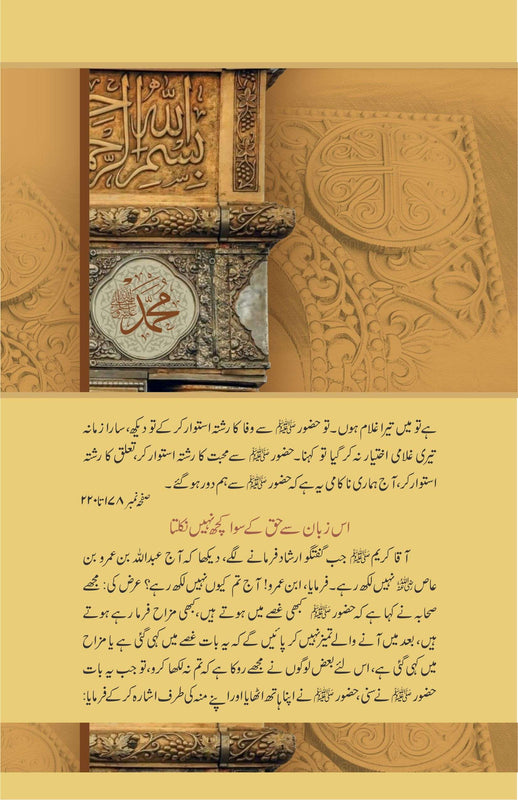 بسم الله الرحم
محمد ﷺ
ہے تو میں تیرا غلام ہوں۔ تو حضور ﷺ سے وفا کا رشتہ استوار کر کے تو دیکھ، سارا زمانہ
تیری غلامی اختیار نہ کر گیا تو کہنا۔ حضور ﷺ سے محبت کا رشتہ استوار کر، تعلق کا رشتہ
استوار کر، آج ہماری ناکامی یہ ہے کہ حضور ﷺ سے ہم دور ہو گئے۔
صفحہ نمبر ۱۷۸ تا ۲۲۰
اس زبان سے حق کے سوا کچھ نہیں نکلتا
آقا کریم ﷺ جب گفتگو ارشاد فرمانے لگے، دیکھا کہ آج عبداللہ بن عمرو بن
عاص رضی اللہ عنہ نہیں لکھ رہے۔ فرمایا، ابن عمرو! آج تم کیوں نہیں لکھ رہے؟ عرض کی: مجھے
صحابہ نے کہا ہے کہ حضور ﷺ کبھی غصے میں ہوتے ہیں، کبھی مزاح فرما رہے ہوتے
ہیں، بعد میں آنے والے تمیز نہیں کر پائیں گے کہ یہ بات غصے میں کہی گئی ہے یا مزاح
میں کہی گئی ہے، اس لئے بعض لوگوں نے مجھے روکا ہے کہ تم نہ لکھا کرو، تو جب یہ بات
حضور ﷺ نے سنی، حضور ﷺ نے اپنا ہاتھ اٹھایا اور اپنے منہ کی طرف اشارہ کر کے فرمایا: